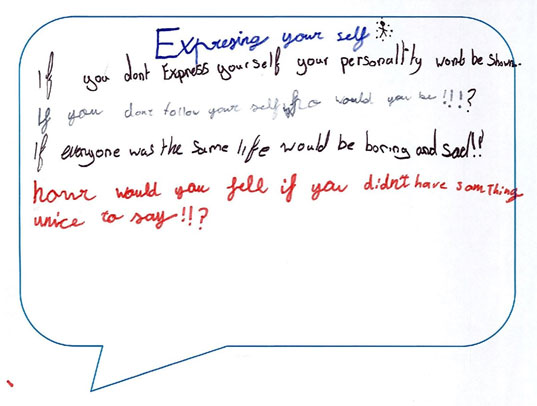 Expresing your self
If you dont Express yourself your personaltity wont be shown.
If you dont follow your self would you be !!!?
If everyone was the same life would be boring and sad!!
hour would you fell if you didn't have somthing
unice to say!!?